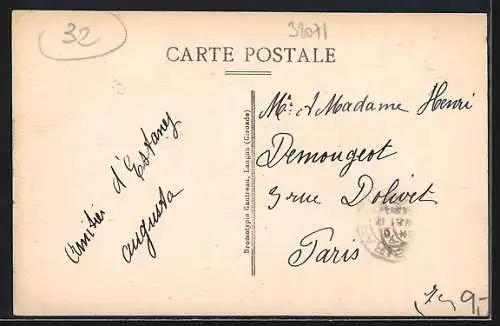 32
32071
CARTE POSTALE
Mr & Madame Henri
Demougeot
3 rue Dolivet
Paris
Amitiés d'Estang
augusta
Bromotypie Gautreau, Langon (Gironde)
9,-